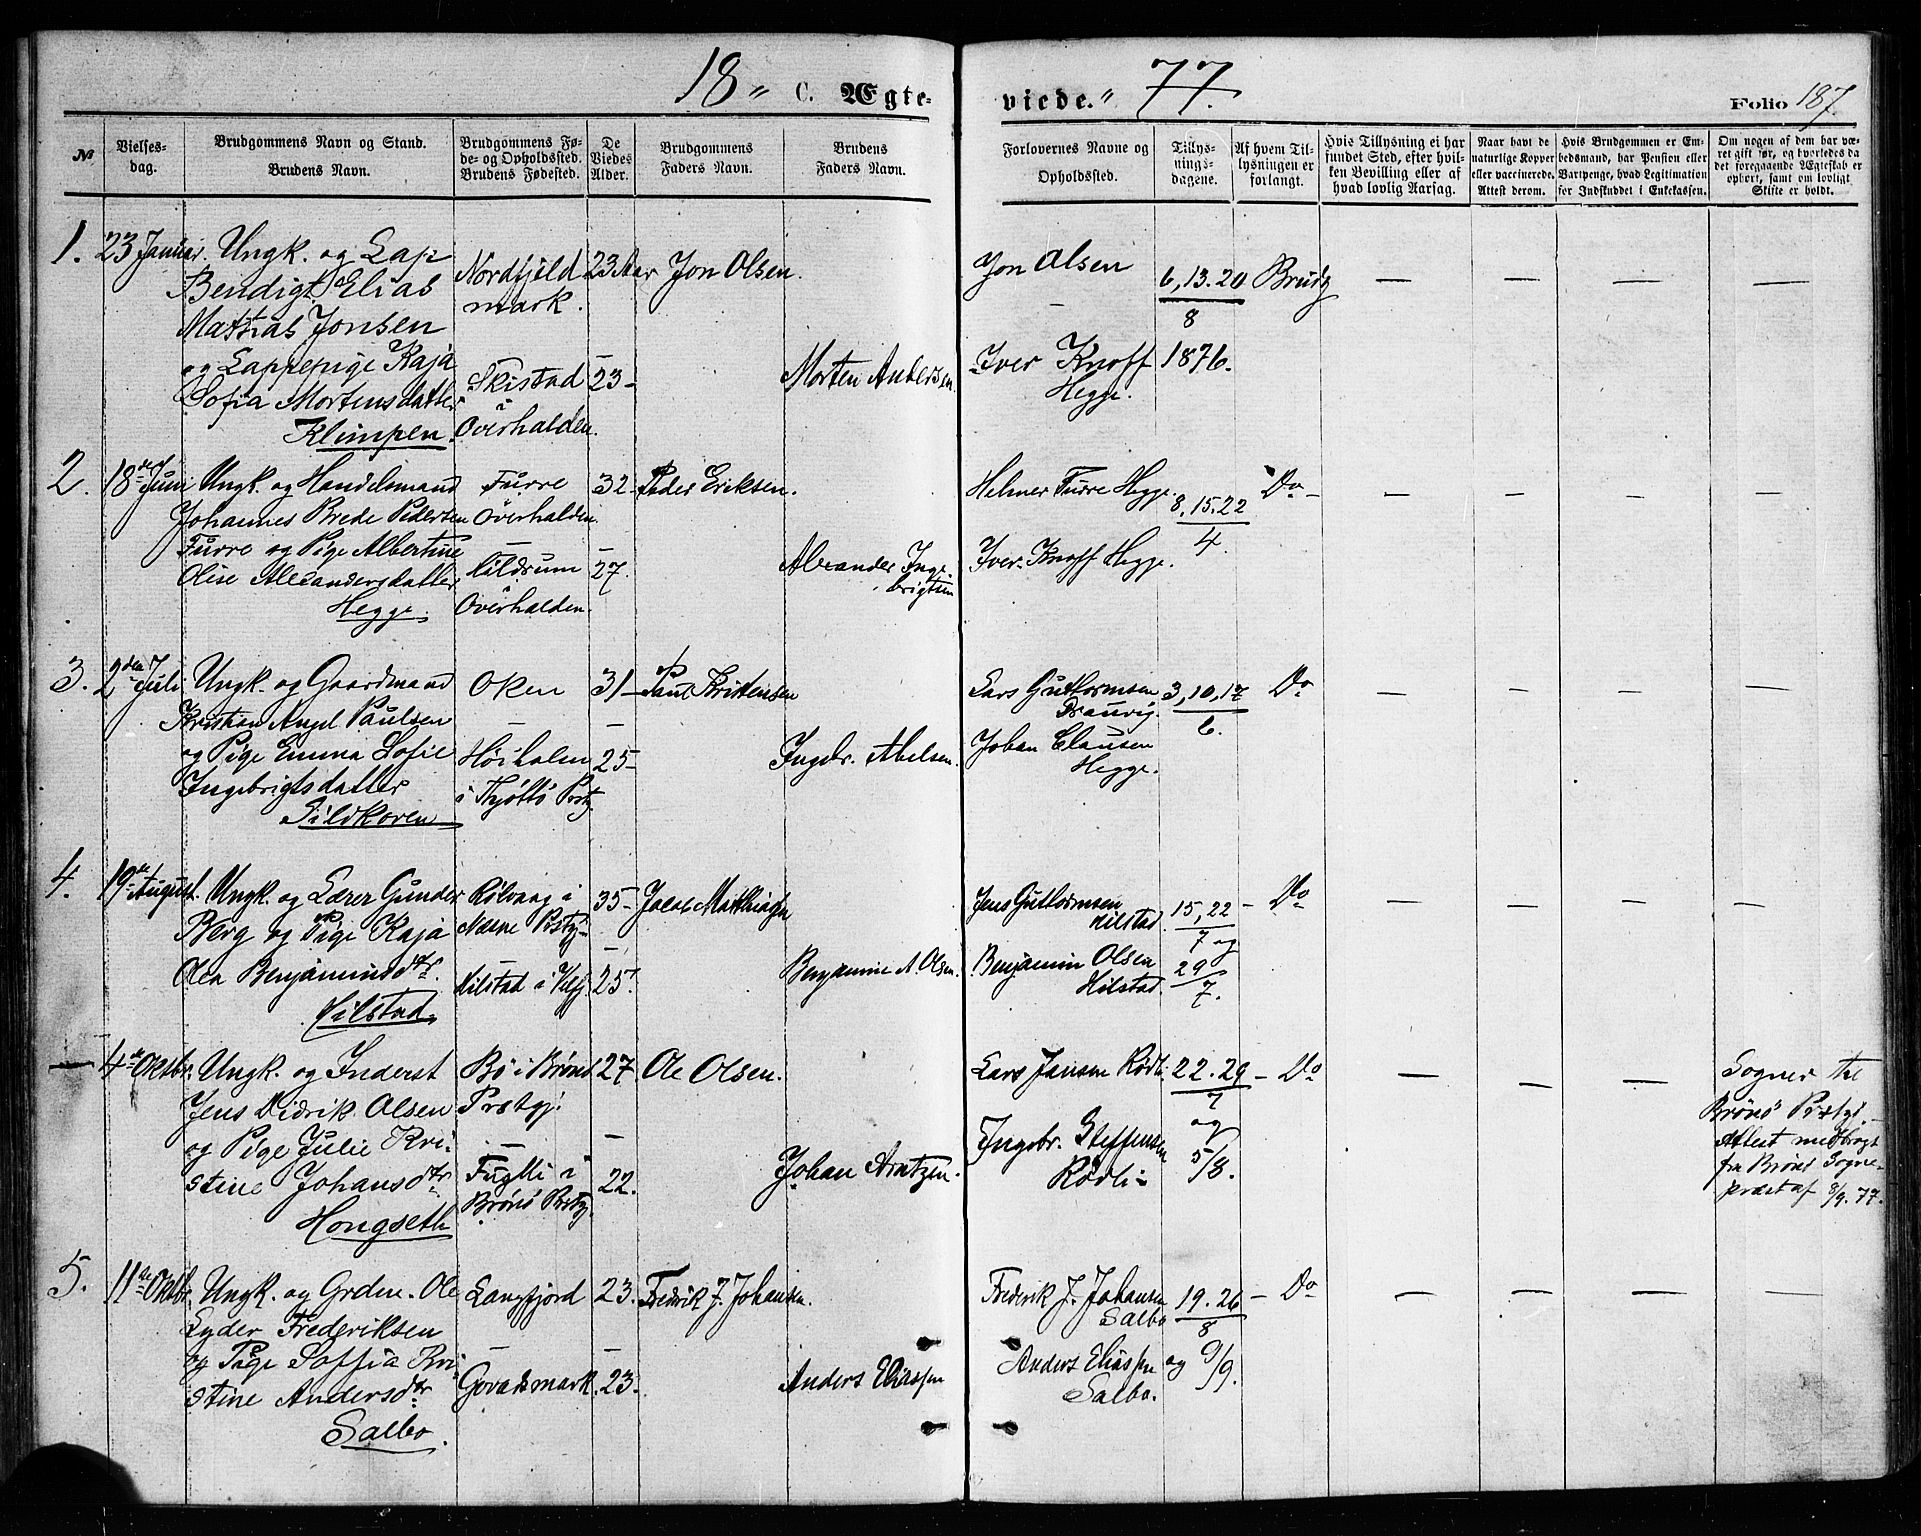 18 " C. Ægte-
viede." 77.
Folio 187.
№
Vielses-
dag.
Brudgommens Navn og Stand.
Brudens Navn.
Brudgommens Fø-
de- og Opholdssted.
Brudens Fødested.
De
Viedes
Alder.
Brudgommens
Faders Navn.
Brudens
Faders Navn.
Forlovernes Navne og
Opholdssted.
Tillys-
nings-
dagene.
Af hvem Til-
lysningen er
forlangt.
Hvis Tillysning ei har
fundet Sted, efter hvil-
ken Bevilling eller af
hvad lovlig Aarsag.
Naar havt de
naturlige Kopper
eller vaccinerede.
Attest derom.
Hvis Brudgommen er Em-
bedsmand, har Pension eller
Vartpenge, hvad Legitimation
for Indskuddet i Enkekassen.
Om nogen af dem har væ-
ret gift før, og hvorledes da
det foregaaende Ægteskab er
ophørt, samt om lovligt
Skifte er holdt.
1. 23 Januar. Ungk. og Lap
Bendigt Elias
Mathias Jonsen
og Lappepige Kaja
Sofia Mortensdatter
Klimpen.
Nordfjeld
mark.
Skistad
i
Overhalden.
23 Aar
23 –
Jon Olsen.
Morten Andersen.
Jon Olsen
–
Iver Knoff
Hegge.
6, 13. 20
8
1876.
Brudg
— — — —
2. 18de Juni Ungk. og Handelsmand
Johannes Brede Pedersen
Furre og Pige Albertine
Olise Alexandersdatter
Hegge.
Furre
Overhalden.
–
Mildrum
i
Overhalden.
32 –
27.
Peder Eriksen.
Alexander Inge-
brigtsen
Helmer Furre Hegge.
Iver Knoff Hegge.
8. 15. 22
4.
Do –
— — — —
3. 2den Juli Ungk. og Gaardmand
Kristian Angel Paulsen
og Pige Emma Sofie
Ingebrigtsdatter
Sildkoren
Oken
–
Høiholen
i Thjøttø Prstg.
31 –
25 –
Paul Kristensen
Ingebr. Abelsen.
Lars Guttormsen
Johan Clausen
Hegge.
3, 10, 17
6.
Do
— — — —
4. 19de August. Ungk. og Lærer Gunder
Berg og Pige Kaja
Olea Benjaminsdtr.
Hilstad.
Rølvaag i
Næsne Prstgj.
Hilstad i Velfj.
35 –
25.
Jacob Mathiasen
Benjamin A. Olsen.
Jens Guttormsen
Hilstad.
Benjamin Olsen
Hilstad
15, 22
7 og
29
7.
– Do
— — — —
— 4de Oktbr. Ungk. og Inderst
Jens Didrik Olsen
og Pige Julie Kri-
stine Johansdtr
Hongseth
Bø i Brønø
Prstgj.
–
i
Brønø Prstg.
27.
22.
Ole Olsen.
Johan Arntzen.
Lars Jansen Rødli
Ingebr. Steffensen
Rødli –
22. 29
7
og
5/8.
– Do
— — —
Sogner til
Brønø Prstgj.
Attest medbragt
fra Brønø Sogne-
præst af 8/9. 77.
5. 11te Oktbr. Ungk. og Grdm. Ole
Lyder Frederiksen
og Pige Soffia Kri-
stine Andersdtr
Salbo.
Langfjord
–
Govadsmark.
23.
23.
Fredrik J. Johansen.
Anders Eliassen
Frederik J. Johansen
Salbo
Anders Eliassen
Salbo.
19. 26
8
og 9/9.
– Do
— — — —